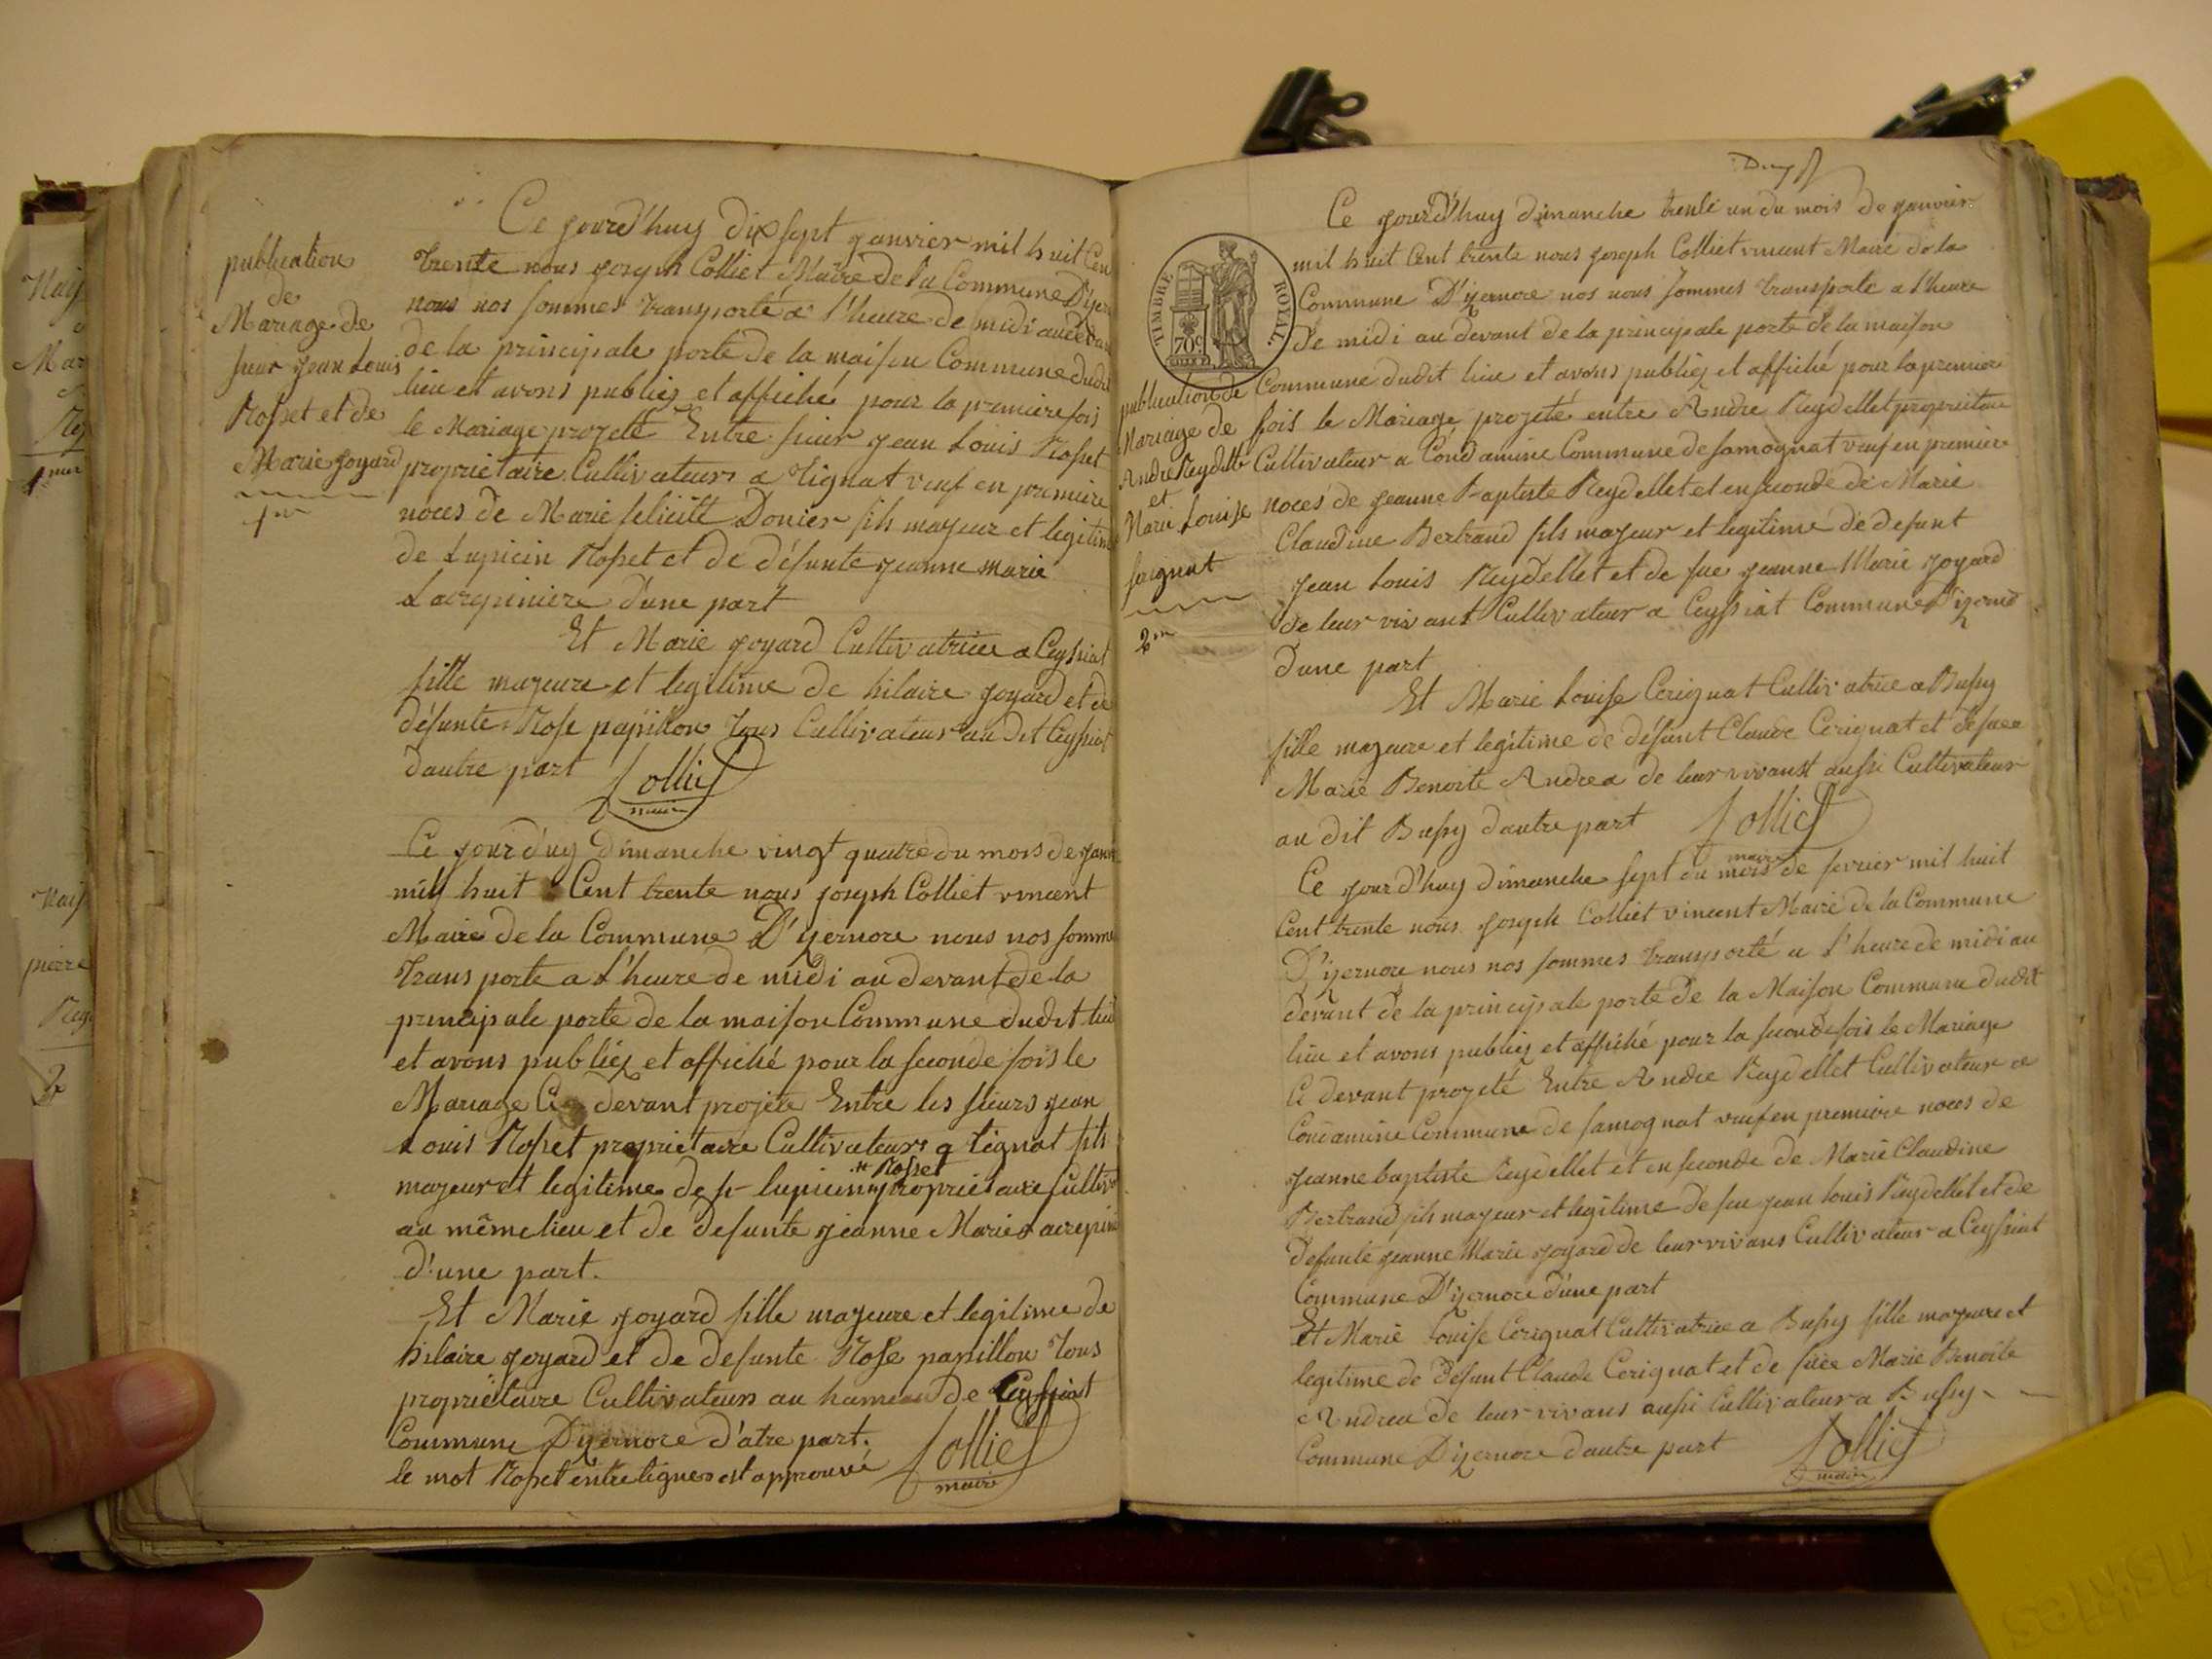 publication
de
Mariage de
sieur jean Louis
Rosset et de
Marie joyard
1er
Ce jourd'huy dix sept janvier mil huit Cen
trente nous joseph Colliet Maire de la Commune D'yzer
nous nos sommes transporté a l'heure de midi au deva
de la principale porte de la maison Commune dudit
lieu et avons publiez et affiché pour la premiere fois
le Mariage projetté Entre sieur jean Louis Rosset
propriétaire Cultivateurs a Tignat veuf en premiere
noces de Marie felicité Donier fils majeur et legitime
de Lupicin Rosset et de défunte jeanne marie
Lacrepiniere d'une part
Et Marie joyard Cultivatrice a Ceyssiat
fille majeure et legitime de hilaire joyard et de
défunte Rose papillon tous Cultivateurs au dit Ceyssiat
dautre part
Colliet
maire
Ce jour d'uy dimanche vingt quatre du mois de janv
mil huit Cent trente nous joseph Colliet vincent
Maire de la Commune D'yzernore nous nos somme
transporte a l'heure de midi au devant de la
principale porte de la maison Commune dudit lieu
et avons publiez et affiché pour la seconde fois le
Mariage Ci devant projeté Entre les sieurs jean
Louis Rosset propriétaire Cultivateurs a tignat fils
Rosset
majeur et legitime de sr lupicin propriétaire Cultiv
au même lieu et de defunte jeanne Marie Lacrepini
d'une part.
Et Marie joyard fille majeure et legitime de
hilaire joyard et de defunte Rose papillon tous
propriétaire Cultivateurs au hameau de Ceyssiat
Commune D'yzernore d'atre part.
le mot Rosset entre lignes est approuvé
Colliet
maire
TIMBRE ROYAL
70c
publication de
Mariage de
André Reydellet
et
Marie Louise
Serignat
2m
Ce jourd'huy dimanche trente un du mois de janvier
mil huit Cent trente nous joseph Colliet vincent Maire de la
Commune D'yzernore nos nous sommes transporté a l'heure
de midi au devant de la principale porte de la maison
Commune dudit lieu et avons publiez et affiché pour la premier
fois le Mariage projeté entre Andre Reydellet propriétaire
Cultivateur a Condamine Commune de samognat veuf en premiere
noces de jeanne Baptiste Reydellet et en seconde de Marie
Claudine Bertrand fils majeur et legitime de defunt
jean Louis Reydellet et de fue jeanne Marie joyard
de leur vivant Cultivateur a Ceyssiat Commune D'yzernore
dune part
Et Marie Louise Cerignat Cultivatrice a Bussy
fille majeure et legitime de défunt Claude Cerignat et de fuee
Marie Benoite Andrea de leur vivanst aussi Cultivateur
au dit Bussy dautre part
Colliet
maire
Ce jour d'huy dimanche sept du mois de fevrier mil huit
Cent trente nous joseph Colliet vincent Maire de la Commune
D'yzernore nous nos sommes transporté a l'heure de midi au
devant de la principale porte de la Maison Commune dudit
lieu et avons publiez et affiché pour la seconde fois le Mariage
Ci devant projeté Entre Andre Reydellet Cultivateur a
Condamine Commune de samognat veuf en premiere noces de
jeanne baptiste Reydellet et en seconde de Marie Claudine
Bertrand fils majeur et legitime de feu jean Louis Reydellet et de
defunte jeanne Marie joyard de leur vivans Cultivateur a Ceyssiat
Commune D'yzernore d'une part
Et Marie Louise Cerignat Cultivatrice a Bussy fille majeure et
legitime de défunt Claude Cerignat et de fuée Marie Benoite
Andrea de leur vivans aussi Cultivateur a Bussy
Commune D'yzernore dautre part
Colliet
maire